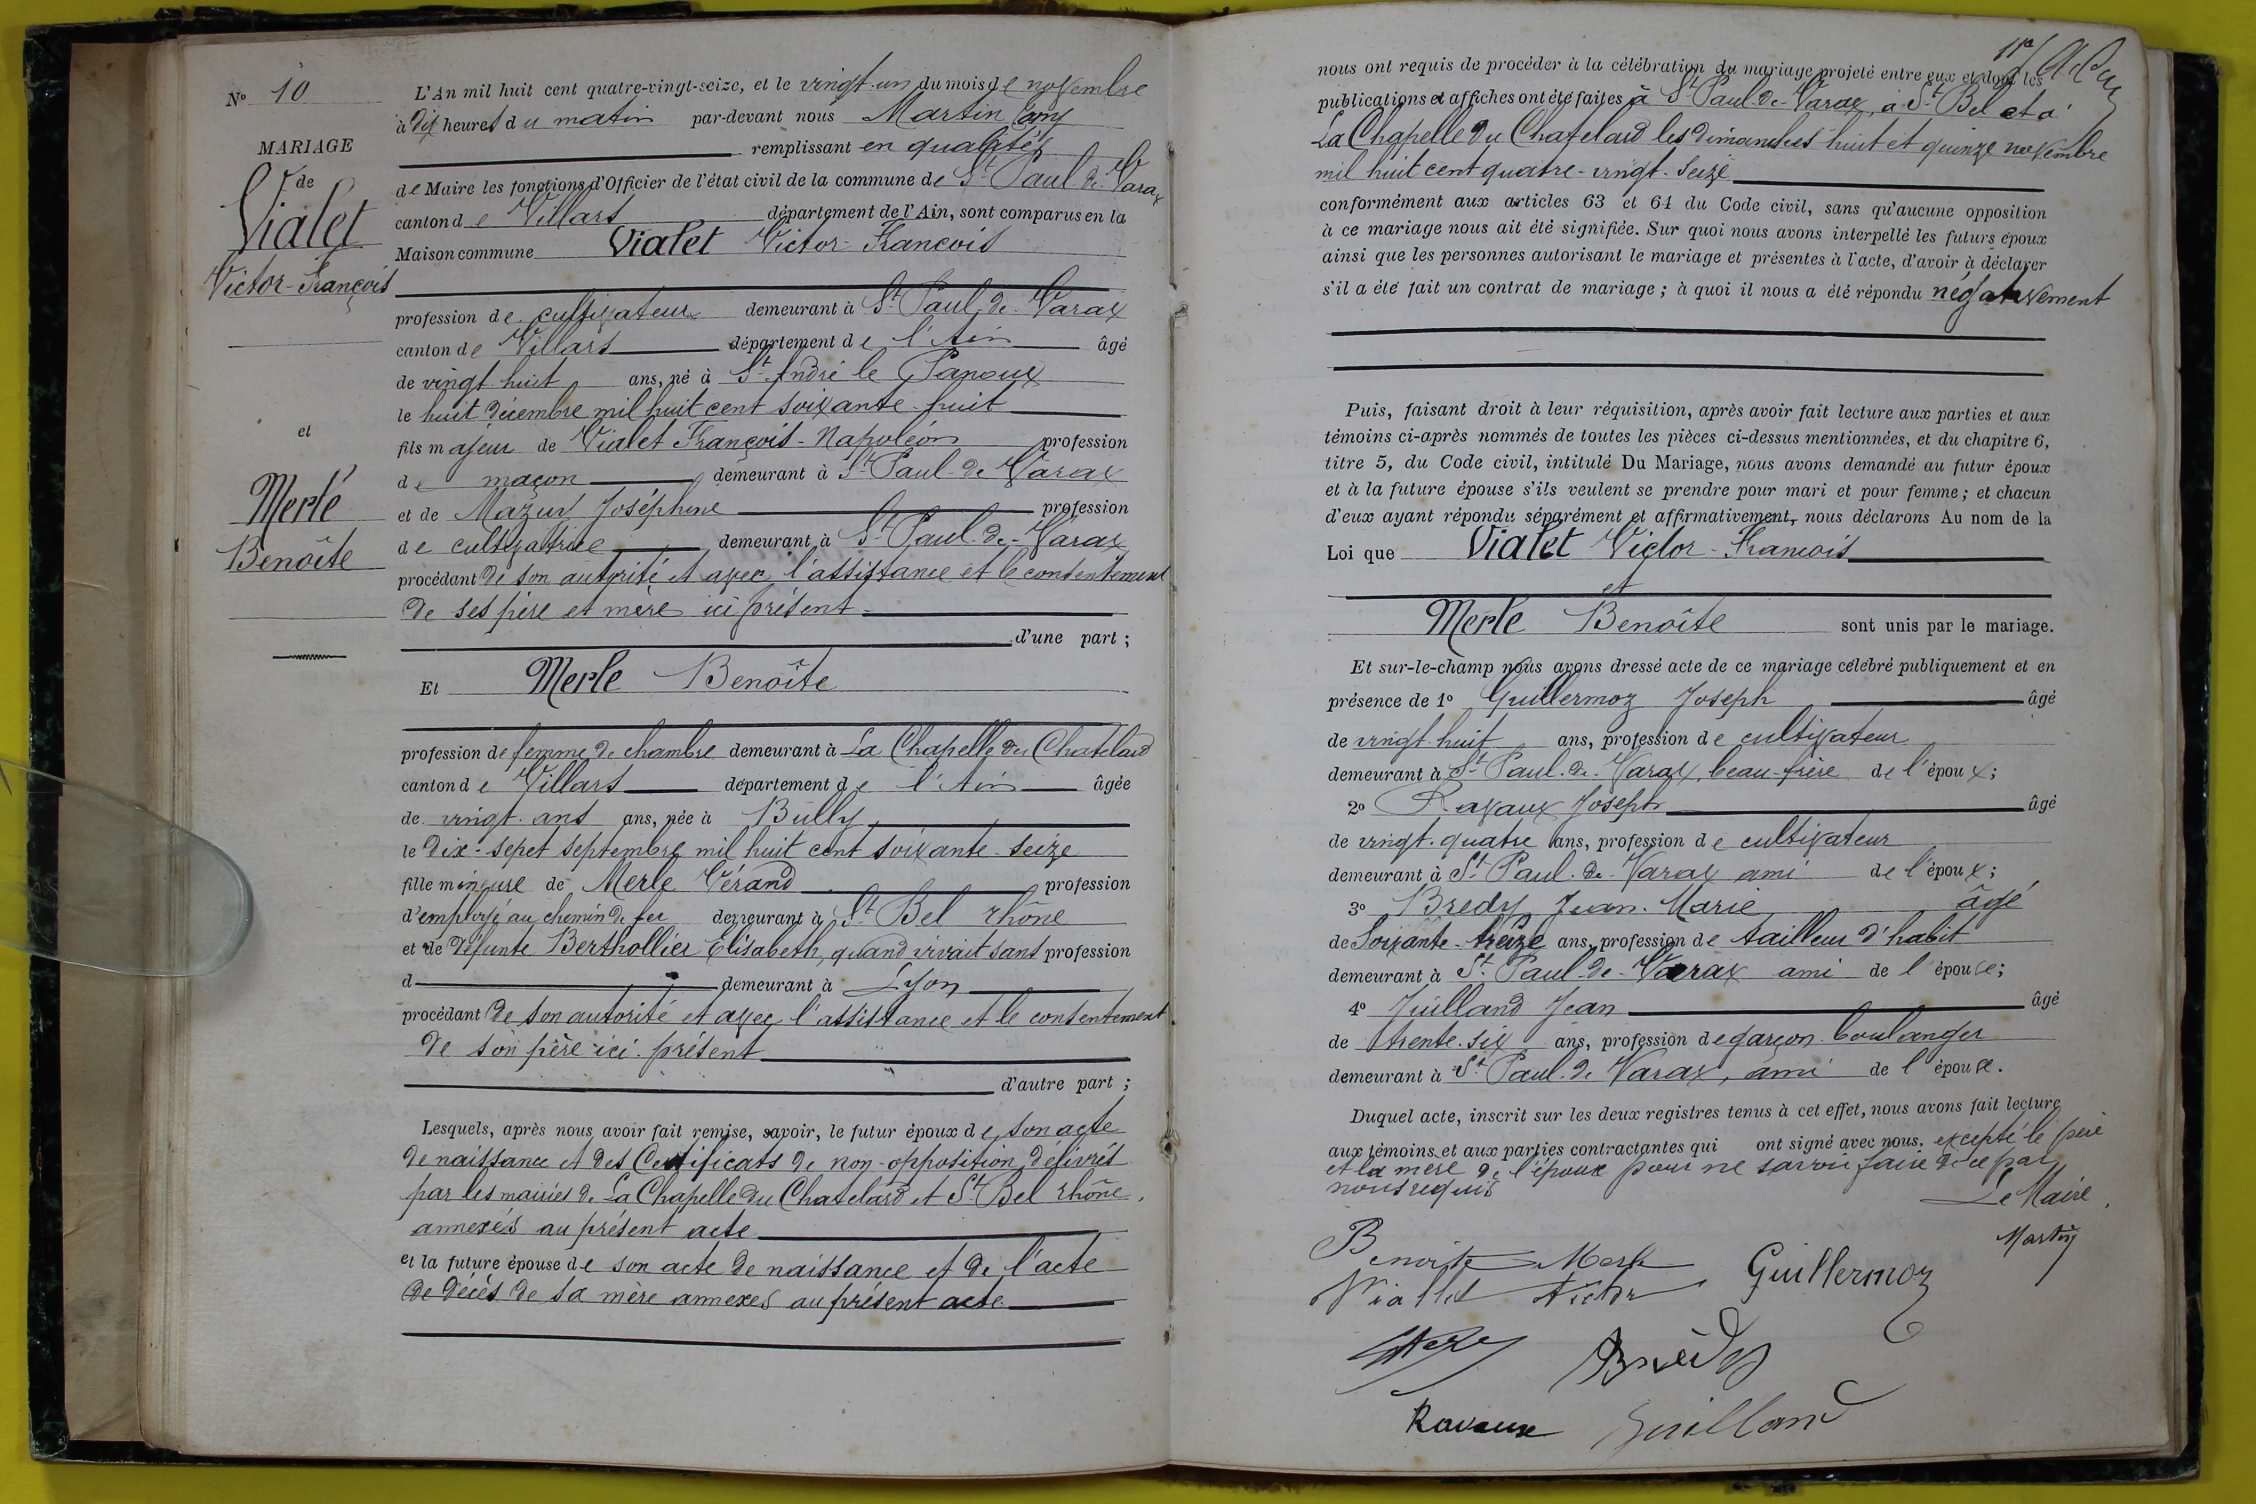 N° 10
MARIAGE
de
Vialet
Victor-François
et
Merle
Benoîte
L'An mil huit cent quatre-vingt-seize, et le vingt-un du mois de novembre
à dix heures du matin par-devant nous Martin
remplissant en qualité
de Maire les fonctions d'Officier de l'état civil de la commune de St Paul de Varax
canton de Villars département de l'Ain, sont comparus en la
Maison commune Vialet Victor-François
profession de cultivateur demeurant à St Paul-de-Varax
canton de Villars département de l'Ain âgé
de vingt huit ans, né à St André le Panoux
le huit décembre mil huit cent soixante-huit
fils majeur de Vialet François-Napoléon profession
de maçon demeurant à St Paul-de-Varax
et de Mazuy Joséphine profession
de cultivatrice demeurant à St Paul-de-Varax
procédant de son autorité et avec l'assistance et le consentement
de ses père et mère ici présent
d'une part ;
Et Merle Benoîte
profession de femme de chambre demeurant à La Chapelle du Chatelard
canton de Villars département de l'Ain âgée
de vingt-ans ans, née à Bully
le dix-sept septembre mil huit cent soixante-seize
fille mineure de Merle Vérand profession
d'employé au chemin de fer demeurant à St Bel rhône
et de défunte Berthollier Elisabeth, quand vivait sans profession
d demeurant à Lyon
procédant de son autorité et avec l'assistance et le consentement
de son père ici présent
d'autre part ;
Lesquels, après nous avoir fait remise, savoir, le futur époux de son acte
de naissance et des Certificats de non-opposition délivrés
par les mairies de La Chapelle du Chatelard et St Bel rhône,
annexés au présent acte
et la future épouse de son acte de naissance et de l'acte
de décès de sa mère annexés au présent acte
nous ont requis de procéder à la célébration du mariage projeté entre eux et dont les
publications et affiches ont été faites à St Paul-de-Varax, à St Bel et à
La Chapelle du Chatelard les dimanches huit et quinze novembre
mil huit cent quatre-vingt-seize
conformément aux articles 63 et 64 du Code civil, sans qu'aucune opposition
à ce mariage nous ait été signifiée. Sur quoi nous avons interpellé les futurs époux
ainsi que les personnes autorisant le mariage et présentes à l'acte, d'avoir à déclarer
s'il a été fait un contrat de mariage ; à quoi il nous a été répondu négativement
Puis, faisant droit à leur réquisition, après avoir fait lecture aux parties et aux
témoins ci-après nommés de toutes les pièces ci-dessus mentionnées, et du chapitre 6,
titre 5, du Code civil, intitulé Du Mariage, nous avons demandé au futur époux
et à la future épouse s'ils veulent se prendre pour mari et pour femme ; et chacun
d'eux ayant répondu séparément et affirmativement, nous déclarons Au nom de la
Loi que Vialet Victor-Francois
et
Merle Benoîte sont unis par le mariage.
Et sur-le-champ nous avons dressé acte de ce mariage célébré publiquement et en
présence de 1° Guillermoz Joseph âgé
de vingt huit ans, profession de cultivateur
demeurant à St Paul-de-Varax, beau-frère de l'époux ;
2° Ravaux Joseph âgé
de vingt-quatre ans, profession de cultivateur
demeurant à St Paul-de-Varax ami de l'époux ;
3° Bredy Jean-Marie âgé
de Soixante-treize ans, profession de tailleur d'habit
demeurant à St Paul-de-Varax ami de l'épouse ;
4° Juilland Jean âgé
de trente-six ans, profession de garçon boulanger
demeurant à St Paul-de Varax, ami de l'épouse.
Duquel acte, inscrit sur les deux registres tenus à cet effet, nous avons fait lecture
aux témoins et aux parties contractantes qui ont signé avec nous, excepté le père
et la mère de l'époux pour ne savoir faire de ce par
nous requis
Le Maire,
Martin
Benoite Merle
Viallet Victor
Guillermoz
Brédy
Ravaux
Juilland